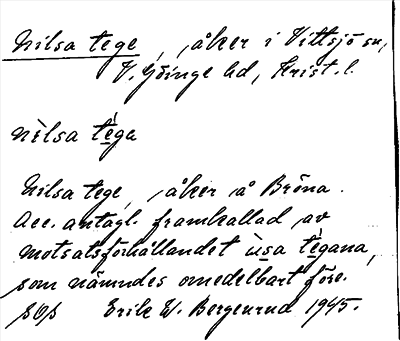 Nilsa tege, åker i Vittsjö sn,
V. Göinge hd, Krist. l.
nìlsa tè̱ga
Nilsa tege, åker å Bröna.
Acc. antagl. framkallad av
motsatsförhållandet ùsa tè̱gana,
som nämndes omedelbart före.
sOs Erik W. Bergenrud 1945.